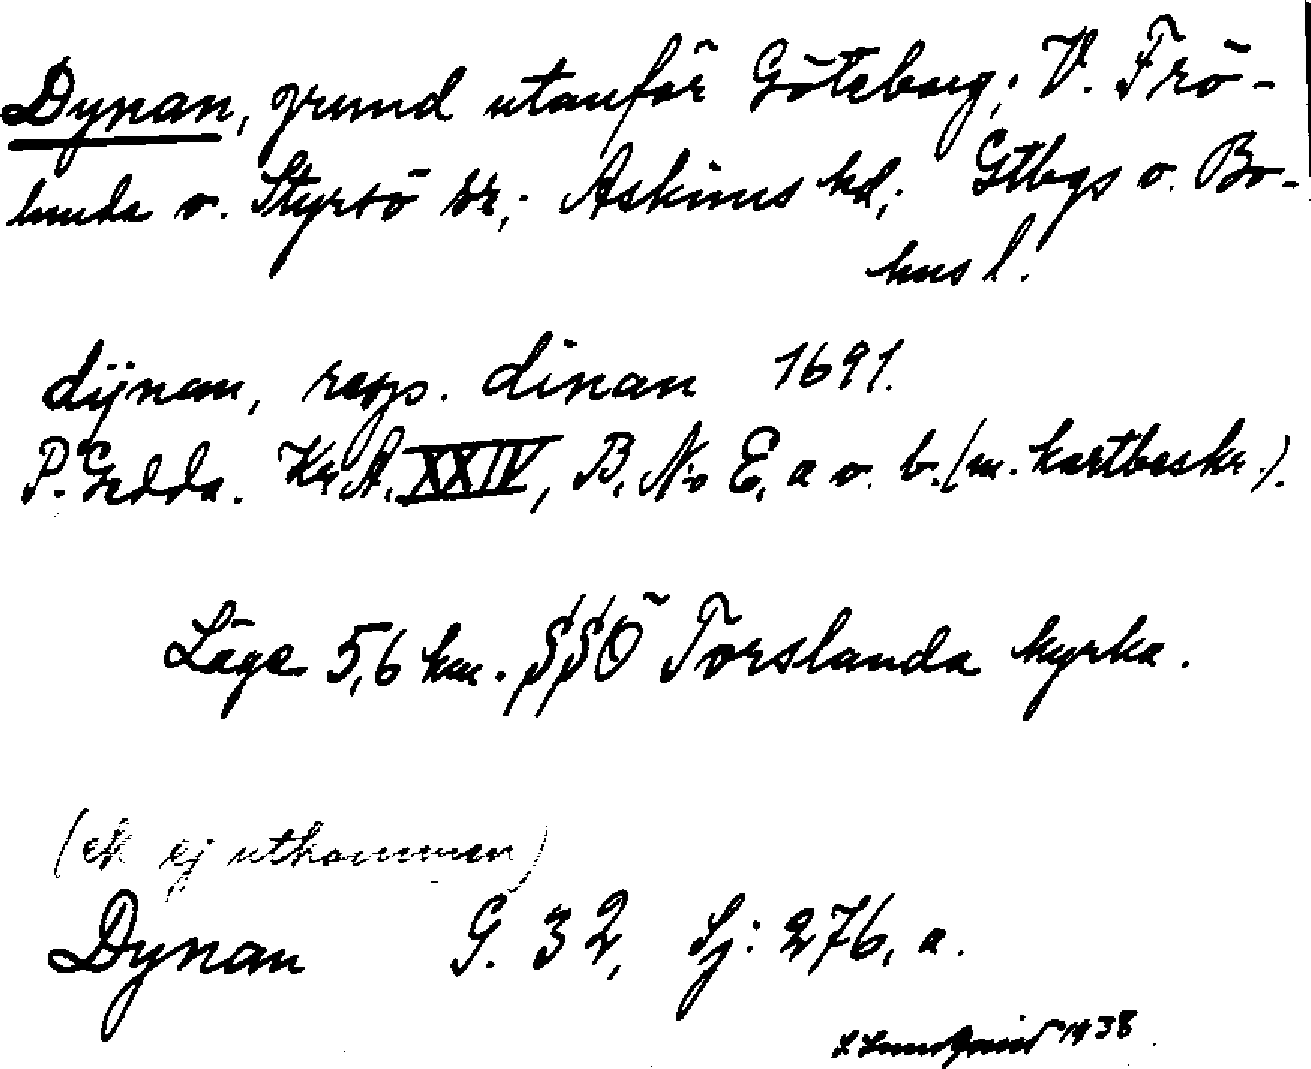 Dynan, grund utanför Göteborg; V. Frö-
lunda o. Styrsö sr; Askims hd; Gtbgs o. Bo-
hus l.
dÿnan, resp. dinan 1691.
P. Gedda. Kr. A. XXIV, B. No E, a o. b. (m. kartbeskr.).
Läge 5,6 km. SSÖ Torslanda kyrka.
(ek ej utkommen)
Dynan G. 32, Sj: 276, a.
1938